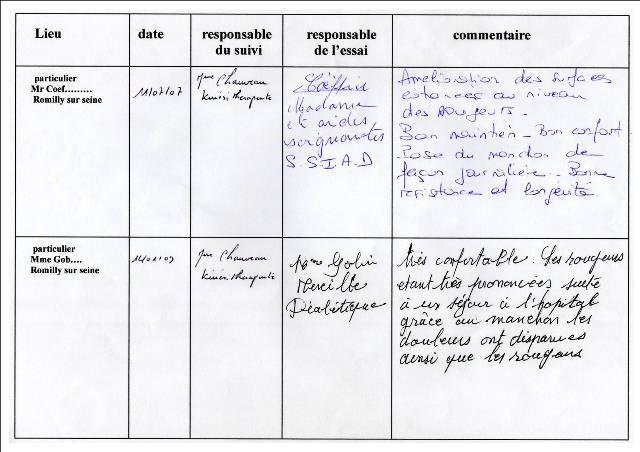 Lieu
date
responsable
du suivi
responsable
de l'essai
commentaire
particulier
Mr Coef.........
Romilly sur seine
11/07/07
Mme Chauveau
Kinésithérapeute
Madame
et aides
soignantes
S.S.I.A.D
Amélioration des surfaces
au niveau
des rougeurs.
Bon maintien - Bon confort
Pose du manchon de
façon journalière. Bonne
résistance et longévité.
particulier
Mme Gob....
Romilly sur seine
Mme Chauveau
Kinésithérapeute
Mme
Mereille
Diabétique
très confortable. Les rougeurs
etant très prononcées suite
à un séjour à l'hopital
grâce au manchon les
douleurs ont disparues
ainsi que les rougeurs